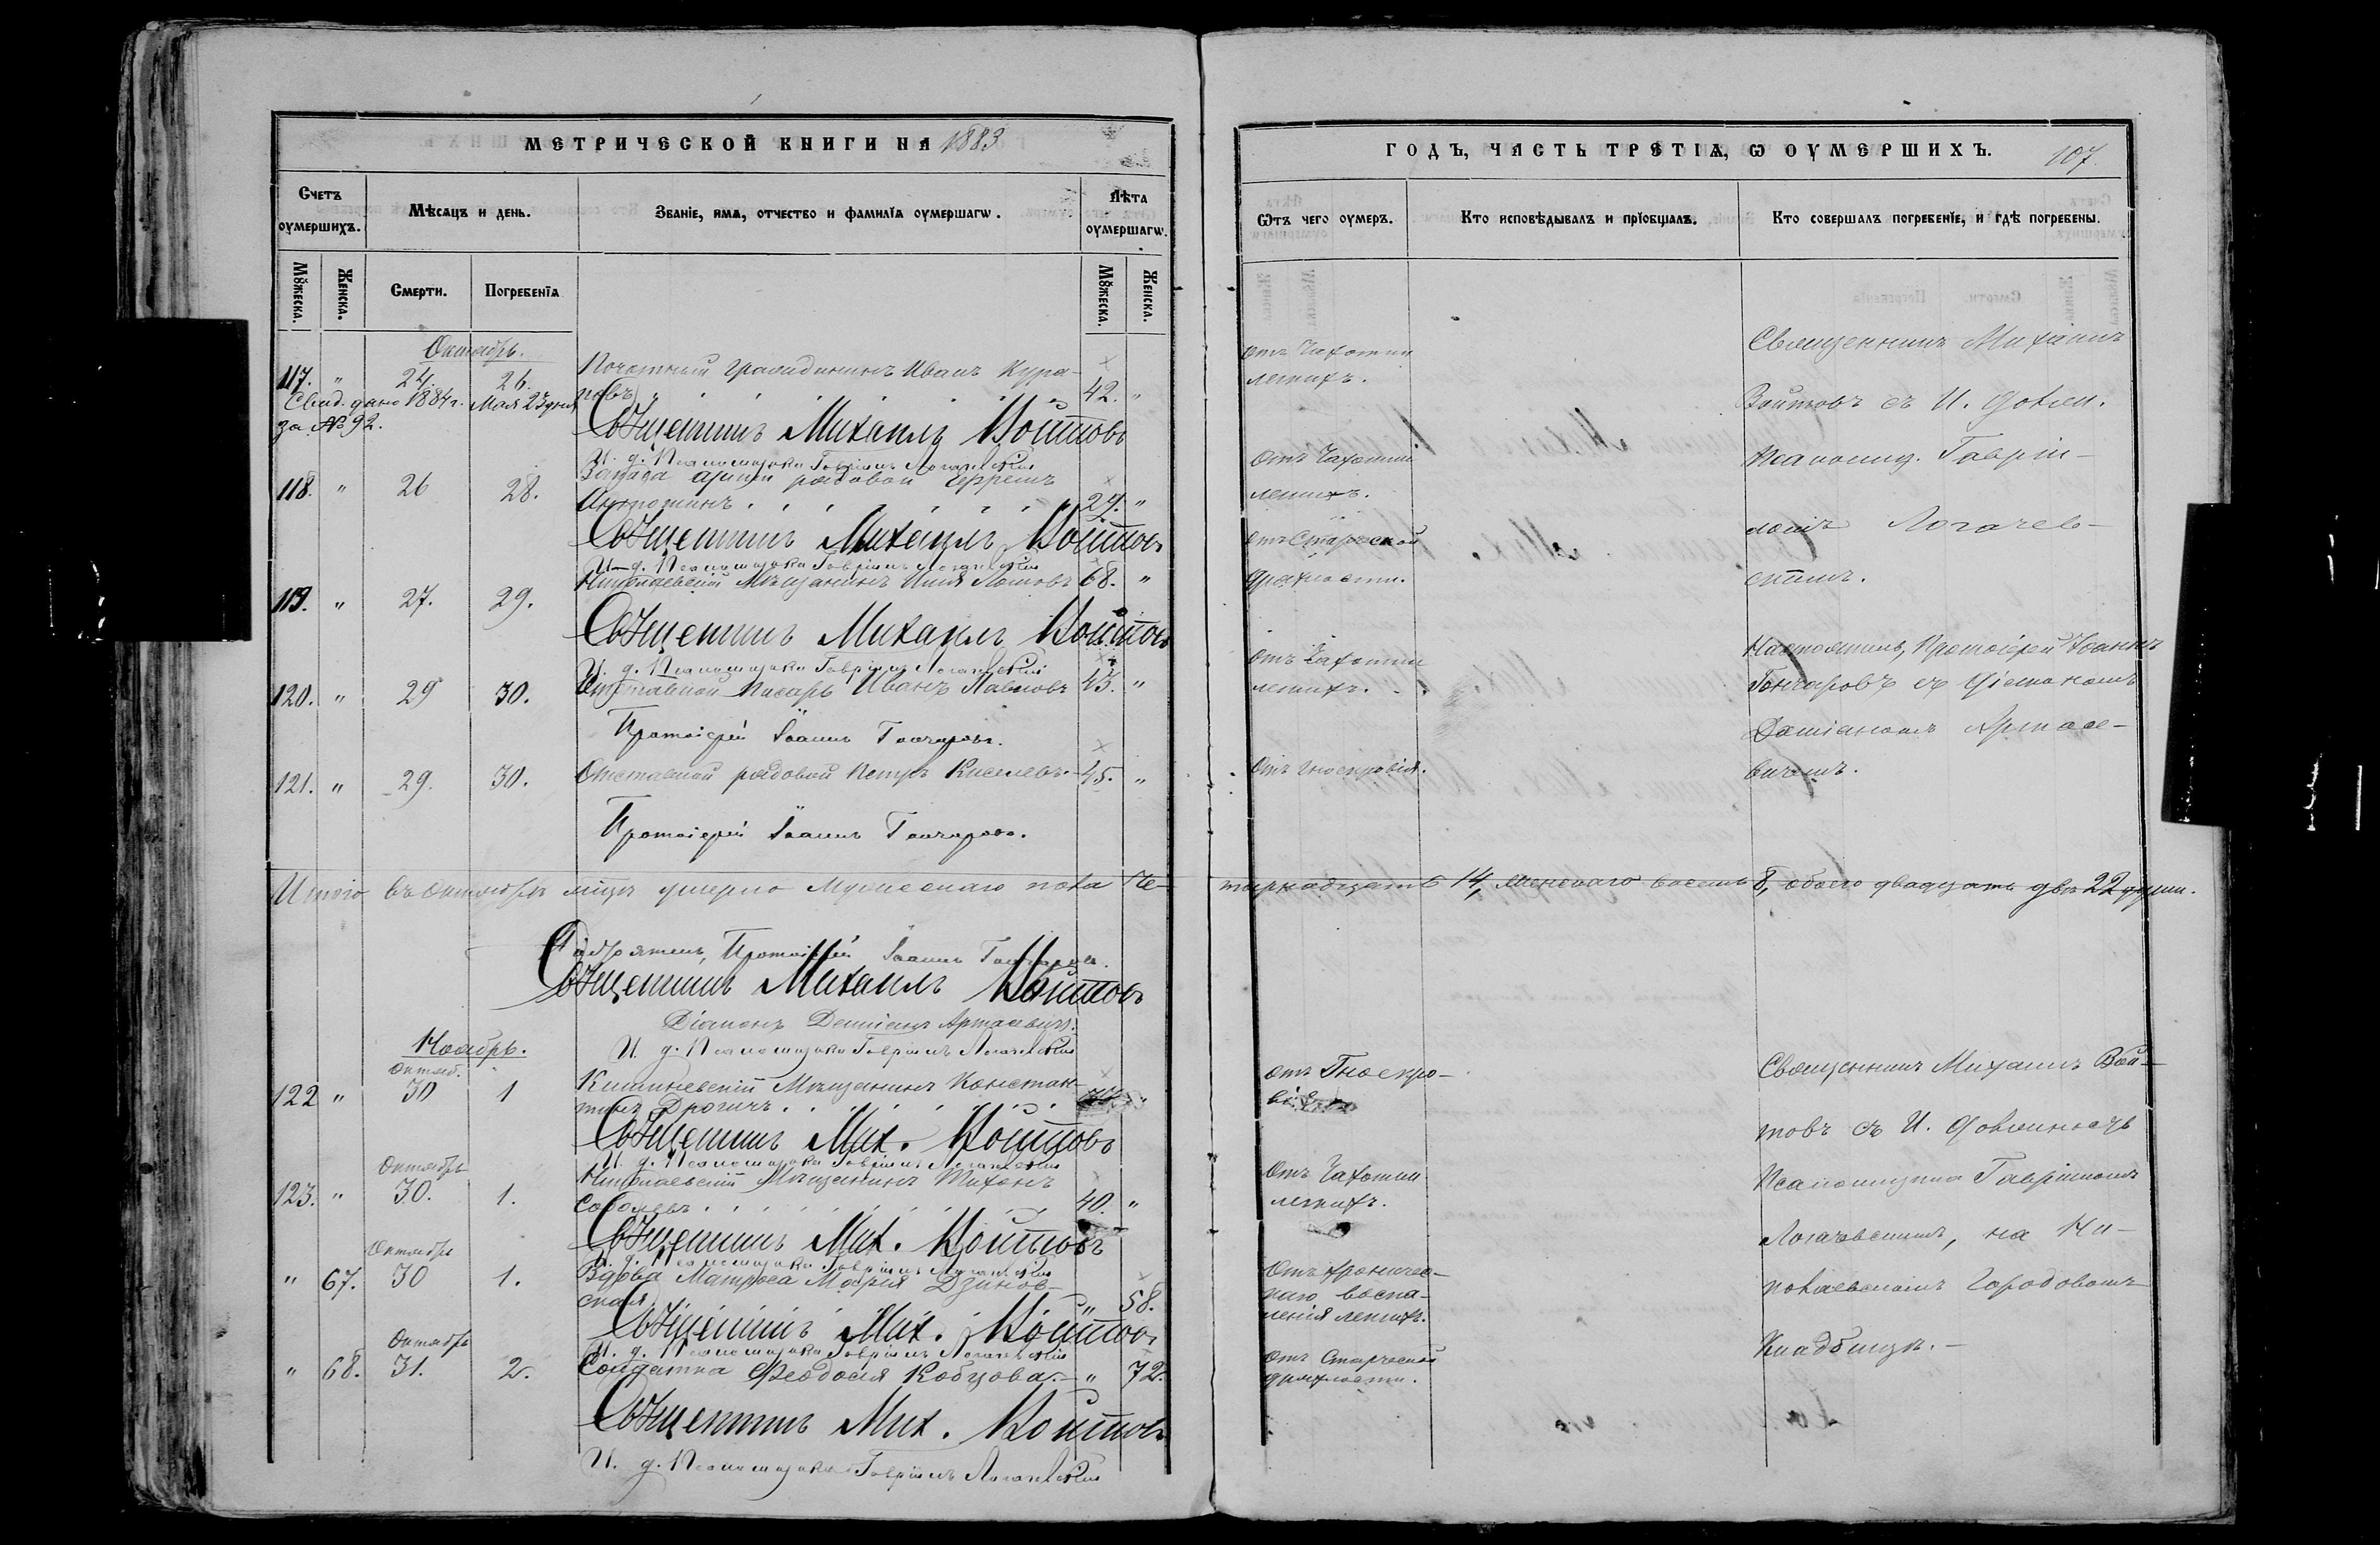 МЕТРИЧЕСКОЙ КНИГИ НА 1883
Счетъ оумершихъ.
Мѣсяцъ и день.
Званіе, имя, отчество и фамилія оумершагѡ.
Лѣта оумершагѡ.
Мꙋжеска.
Женска.
Смерти.
Погребенія
Мꙋжеска.
Женска.
Октябрь.
117. " 24. 26. Почетный гражданинъ Иванъ Кура-
повъ 42. "
Свид. дано 1884 г. Мая 23 дня
за № 92.
Священникъ Михаилъ Войтовъ
И. д. Псаломщика Гавріилъ Логачевскій
118. " 26 28. Запаса арміи рядовой Ефремъ
Антонинъ 29. "
Священникъ Михаилъ Войтовъ
И. д. Псаломщика Гавріилъ Логачевскій
119. " 27. 29. Николаевскій Мѣщанинъ Илія Ломовъ 68. "
Священникъ Михаилъ Войтовъ
И. д. Псаломщика Гавріилъ Логачевскій
120. " 29 30. Отставной писарь Иванъ Павловъ 43. "
Протоіерей Іоаннъ Гончаровъ.
121. " 29. 30. Отставной рядовой Петръ Киселевъ 45. "
Протоіерей Іоаннъ Гончаровъ.
Итого въ Октябрѣ мѣцѣ умерло Мужескаго пола Че-
Протоіерей Іоаннъ Гончаровъ.
Священникъ Михаилъ Войтовъ
Діаконъ Даміанъ Артасевичъ.
И. д. Псаломщика Гавріилъ Логачевскій
Ноябрь.
Октяб.
122 " 30 1 Кишиневскій Мѣщанинъ Констан-
тинъ Дрогичъ "
Священникъ Мих. Войтовъ
И. д. Псаломщика Гавріилъ Логачевскій
Октябрь
123. " 30. 1. Николаевскій Мѣщанинъ Тихонъ
Соболевъ 40. "
Священникъ Мих. Войтовъ
И. д. Псаломщика Гавріилъ Логачевскій
Октябрь
" 67. 30 1. Вдова Матроса Марія Дзинов-
ская " 58.
Священникъ Мих. Войтовъ
И. д. Псаломщика Гавріилъ Логачевскій
Октябрь
" 68. 31. 2. Солдатка Феодосія Кобцова. " 72.
Священникъ Мих. Войтовъ
И. д. Псаломщика Гавріилъ Логачевскій
ГОДЪ, ЧАСТЬ ТРЕТІЯ, Ѡ ОУМЕРШИХЪ.
107.
Ѿтъ чего оумеръ.
Кто исповѣдывалъ и пріобщалъ.
Кто совершалъ погребеніе, и гдѣ погребены.
отъ Чахотки
легкихъ.
Отъ Чахотки
легкихъ.
отъ Старческой
дряхлости.
Отъ Чахотки
легкихъ.
Отъ гнокровія.
Священникъ Михаилъ
Войтовъ съ И. должн.
Псаломщ. Гавріи-
ломъ Логачев-
скимъ.
Настоятель, Протоіерей Іоаннъ
Гончаровъ съ Діакономъ
Даміаномъ Артасе-
вичемъ.
тырнадцать 14, Женскаго восемь 8, обоего двадцать двѣ 22 души.
отъ Гноекро-
вія
Отъ Чахотки
легкихъ.
Отъ хроничес-
каго воспа-
ленія легкихъ.
Отъ Старческой
дряхлости.
Священникъ Михаилъ Вой-
товъ съ И. должность
Псаломщика Гавріиломъ
Логачевскимъ, на Ни-
колаевскомъ Городовомъ
Кладбищѣ.